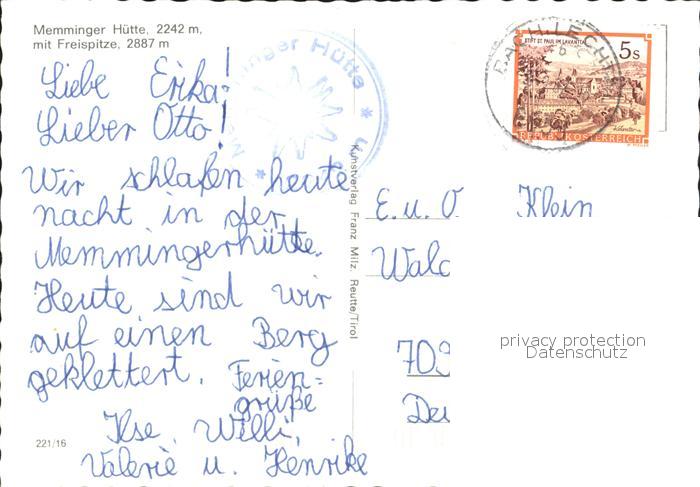 Memminger Hütte, 2242 m,
mit Freispitze, 2887 m
Liebe Erika!
Lieber Otto!
Wir schlafen heute
nacht in der
Memmingerhütte.
Heute sind wir
auf einen Berg
geklettert. Ferien=
grüße
Ilse, Willi,
Valerie u. Henrike
221/16
Kunstverlag Franz Milz, Reutte/Tirol
STIFT ST. PAUL IM LAVANTTAL
5s
REPUBLIK ÖSTERREICH
E. u. O Klein
Wald
709
Deu
privacy protection
Datenschutz